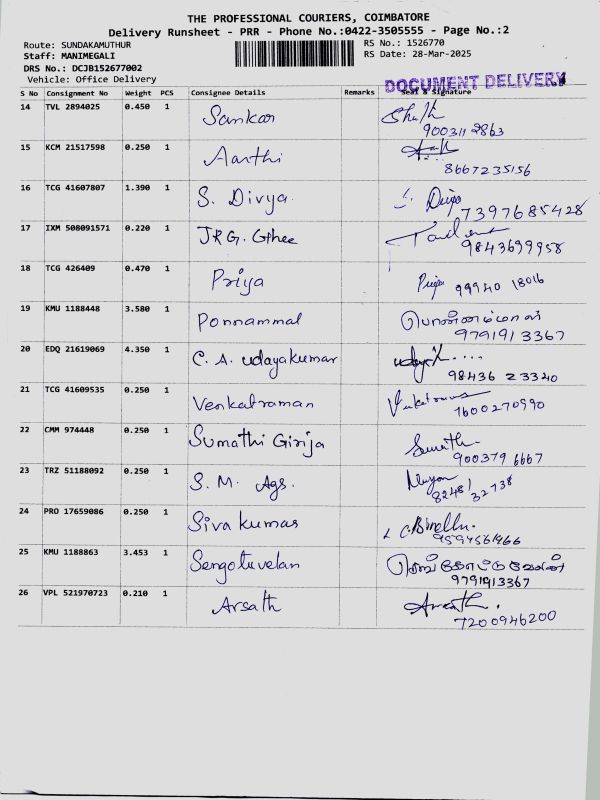 THE PROFESSIONAL COURIERS, COIMBATORE
Delivery Runsheet - PRR - Phone No.:0422-3505555 - Page No.:2
Route: SUNDAKAMUTHUR RS No.: 1526770
Staff: MANIMEGALI RS Date: 28-Mar-2025
DRS No.: DCJB152677002
Vehicle: Office Delivery
DOCUMENT DELIVERY
S No Consignment No Weight PCS Consignee Details Remarks Seal & Signature
14 TVL 2894025 0.450 1 Sankar
9003112863
15 KCM 21517598 0.250 1 Aarthi
8667235156
16 TCG 41607807 1.390 1 S. Divya. S. Divya
7397685428
17 IXM 508091571 0.220 1 JRG. Gthee
9843699958
18 TCG 426409 0.470 1 Priya Priya 99940 18016
19 KMU 1188448 3.580 1 Ponnammal பொன்னம்மாள்
9791913367
20 EDQ 21619069 4.350 1 C. A. Udayakumar
98436 23340
21 TCG 41609535 0.250 1 Venkatraman
7600270990
22 CMM 974448 0.250 1 Sumathi Girija
900379 6667
23 TRZ 51188092 0.250 1 S. M. Ags.
82481 32738
24 PRO 17659086 0.250 1 Sivakumar
9594561966
25 KMU 1188863 3.453 1 Sengotuvelan செங்கோட்டுவேலன்
9791913367
26 VPL 521970723 0.210 1 Arsath Arsath.
7200946200